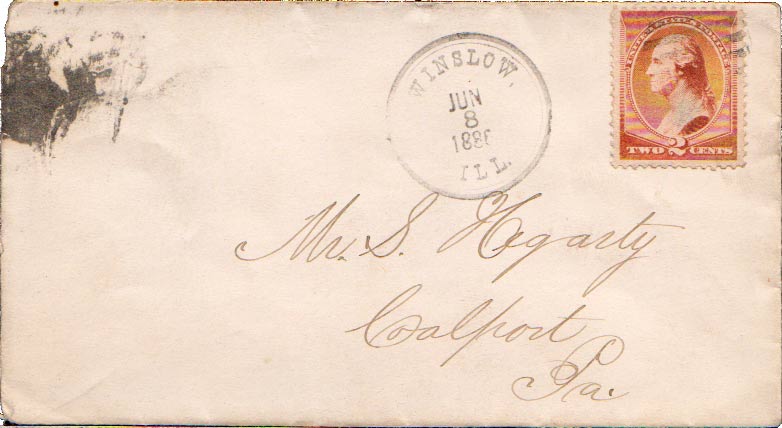 WINSLOW,
JUN
8
1886
ILL.
UNITED STATES POSTAGE
TWO 2 CENTS
Mr. S. Hegarty
Coalport
Pa.